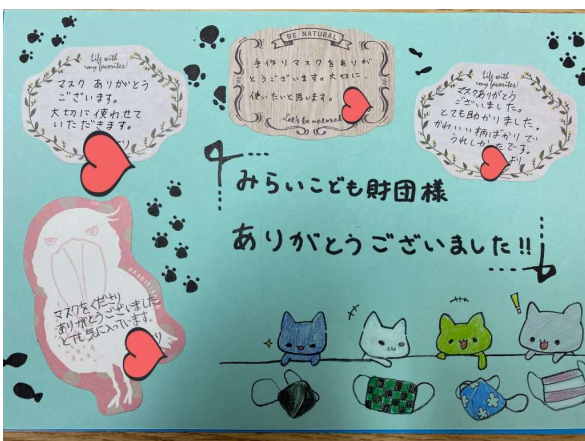 Life with
my favorites!
マスク ありがとう
ございます。
大切に使わせて
いただきます。
より
BE NATURAL
手作りマスクをありが
とうございます。大切に
使いたいと思います。
Let's be natural
Life with
my favorites!
マスクありがとう
ございました。
とても助かりました。
かわいい柄ばかりで
うれしかったです。
より
みらいこども財団様
ありがとうございました!!
マスクをくださり
ありがとうございました
とても気に入っています。
より